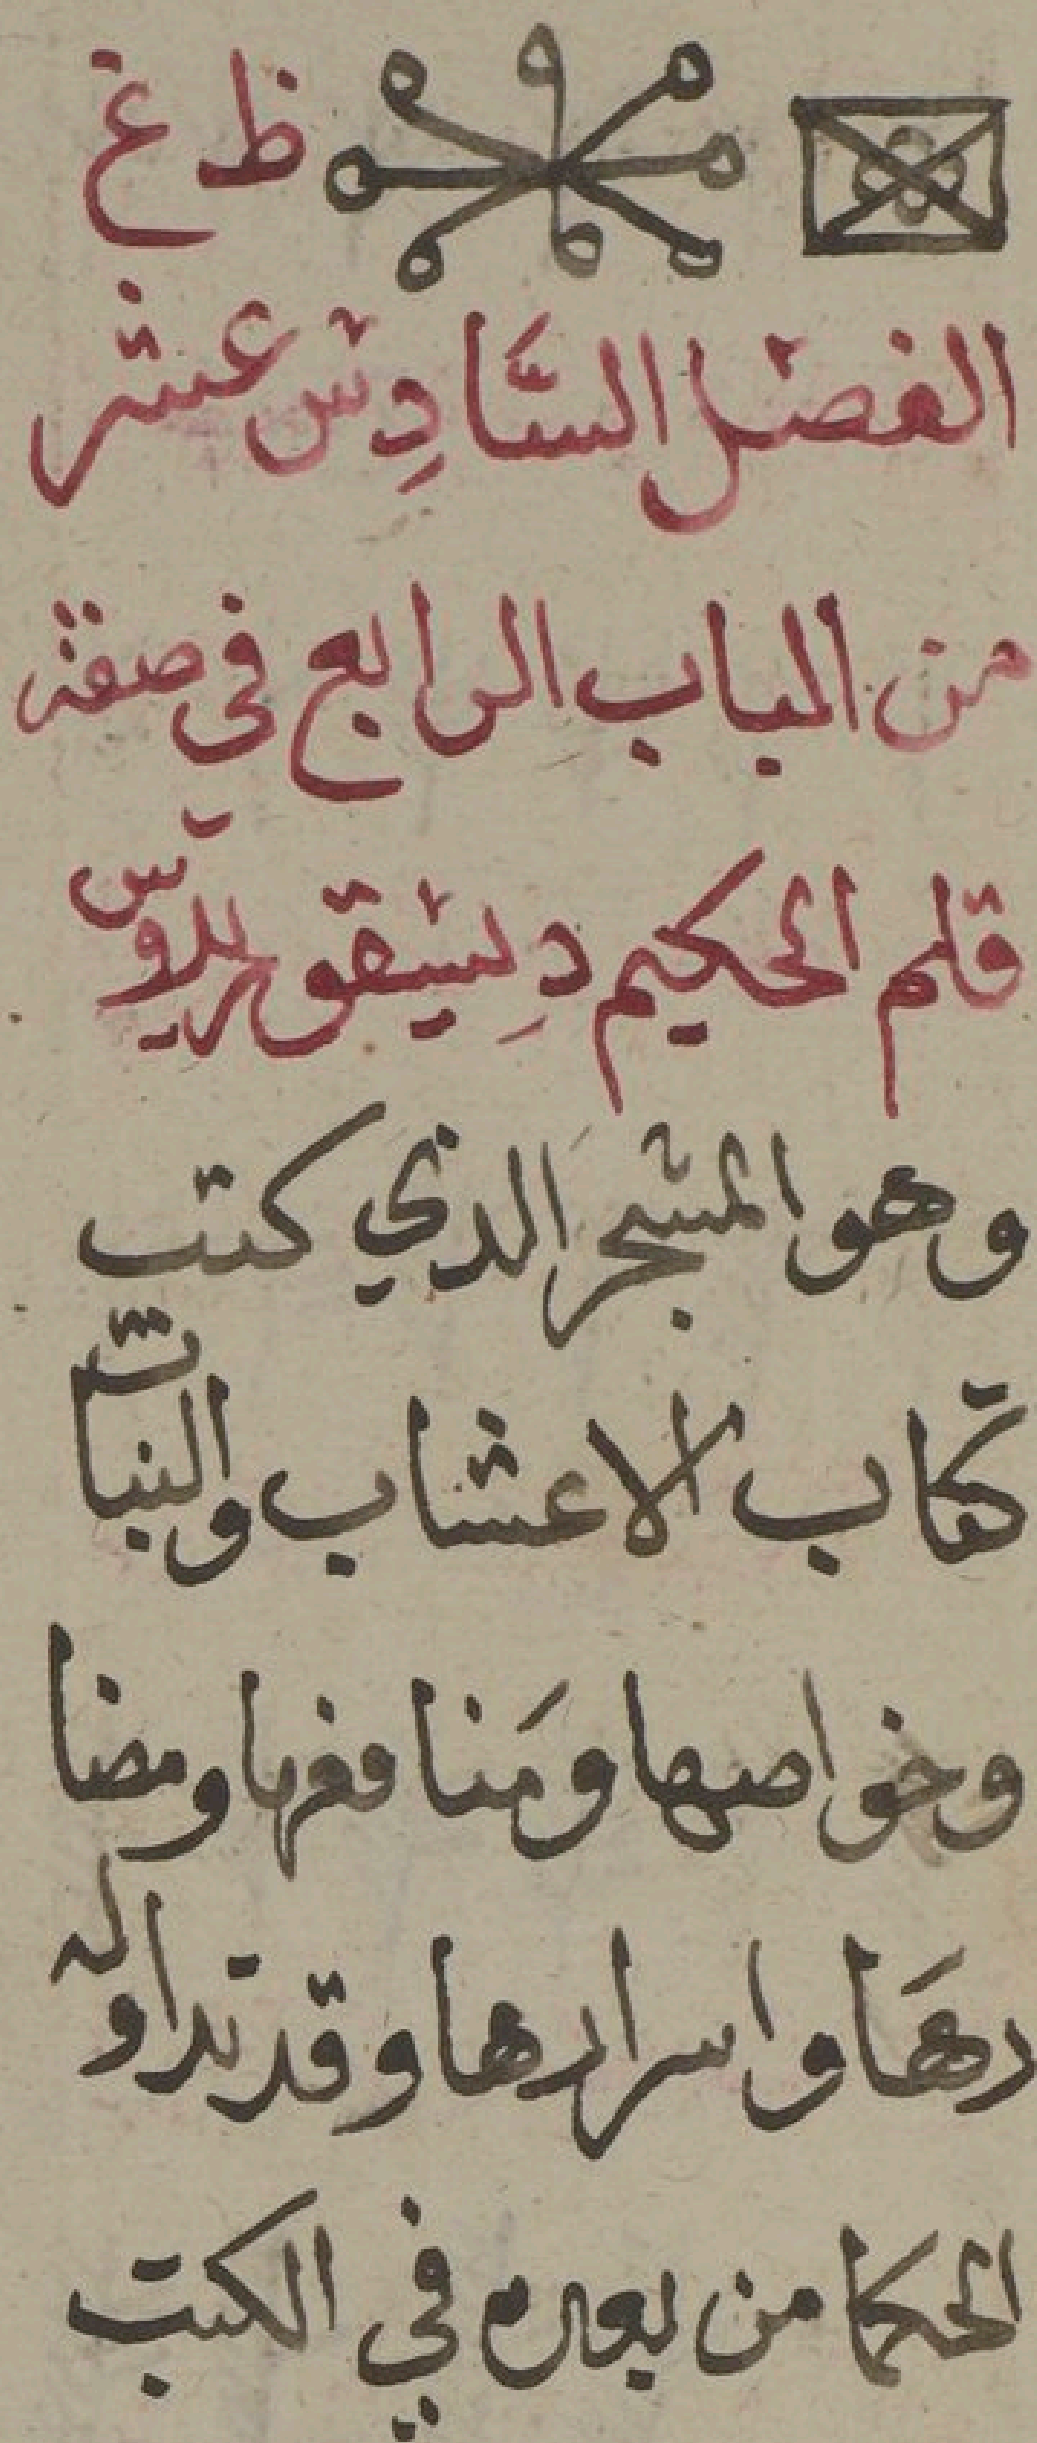 ظ غ
الفصل السَّادِس عشر
من الباب الرابع في صفة
قلم الحكيم دِيسقوريدوس
وهو المشجر الذي كتب
كتاب الاعشاب والنبات
وخواصها ومَنافعها ومضا
رهَا واسرارها وقد تداوله
الحكما من بعده في الكتب